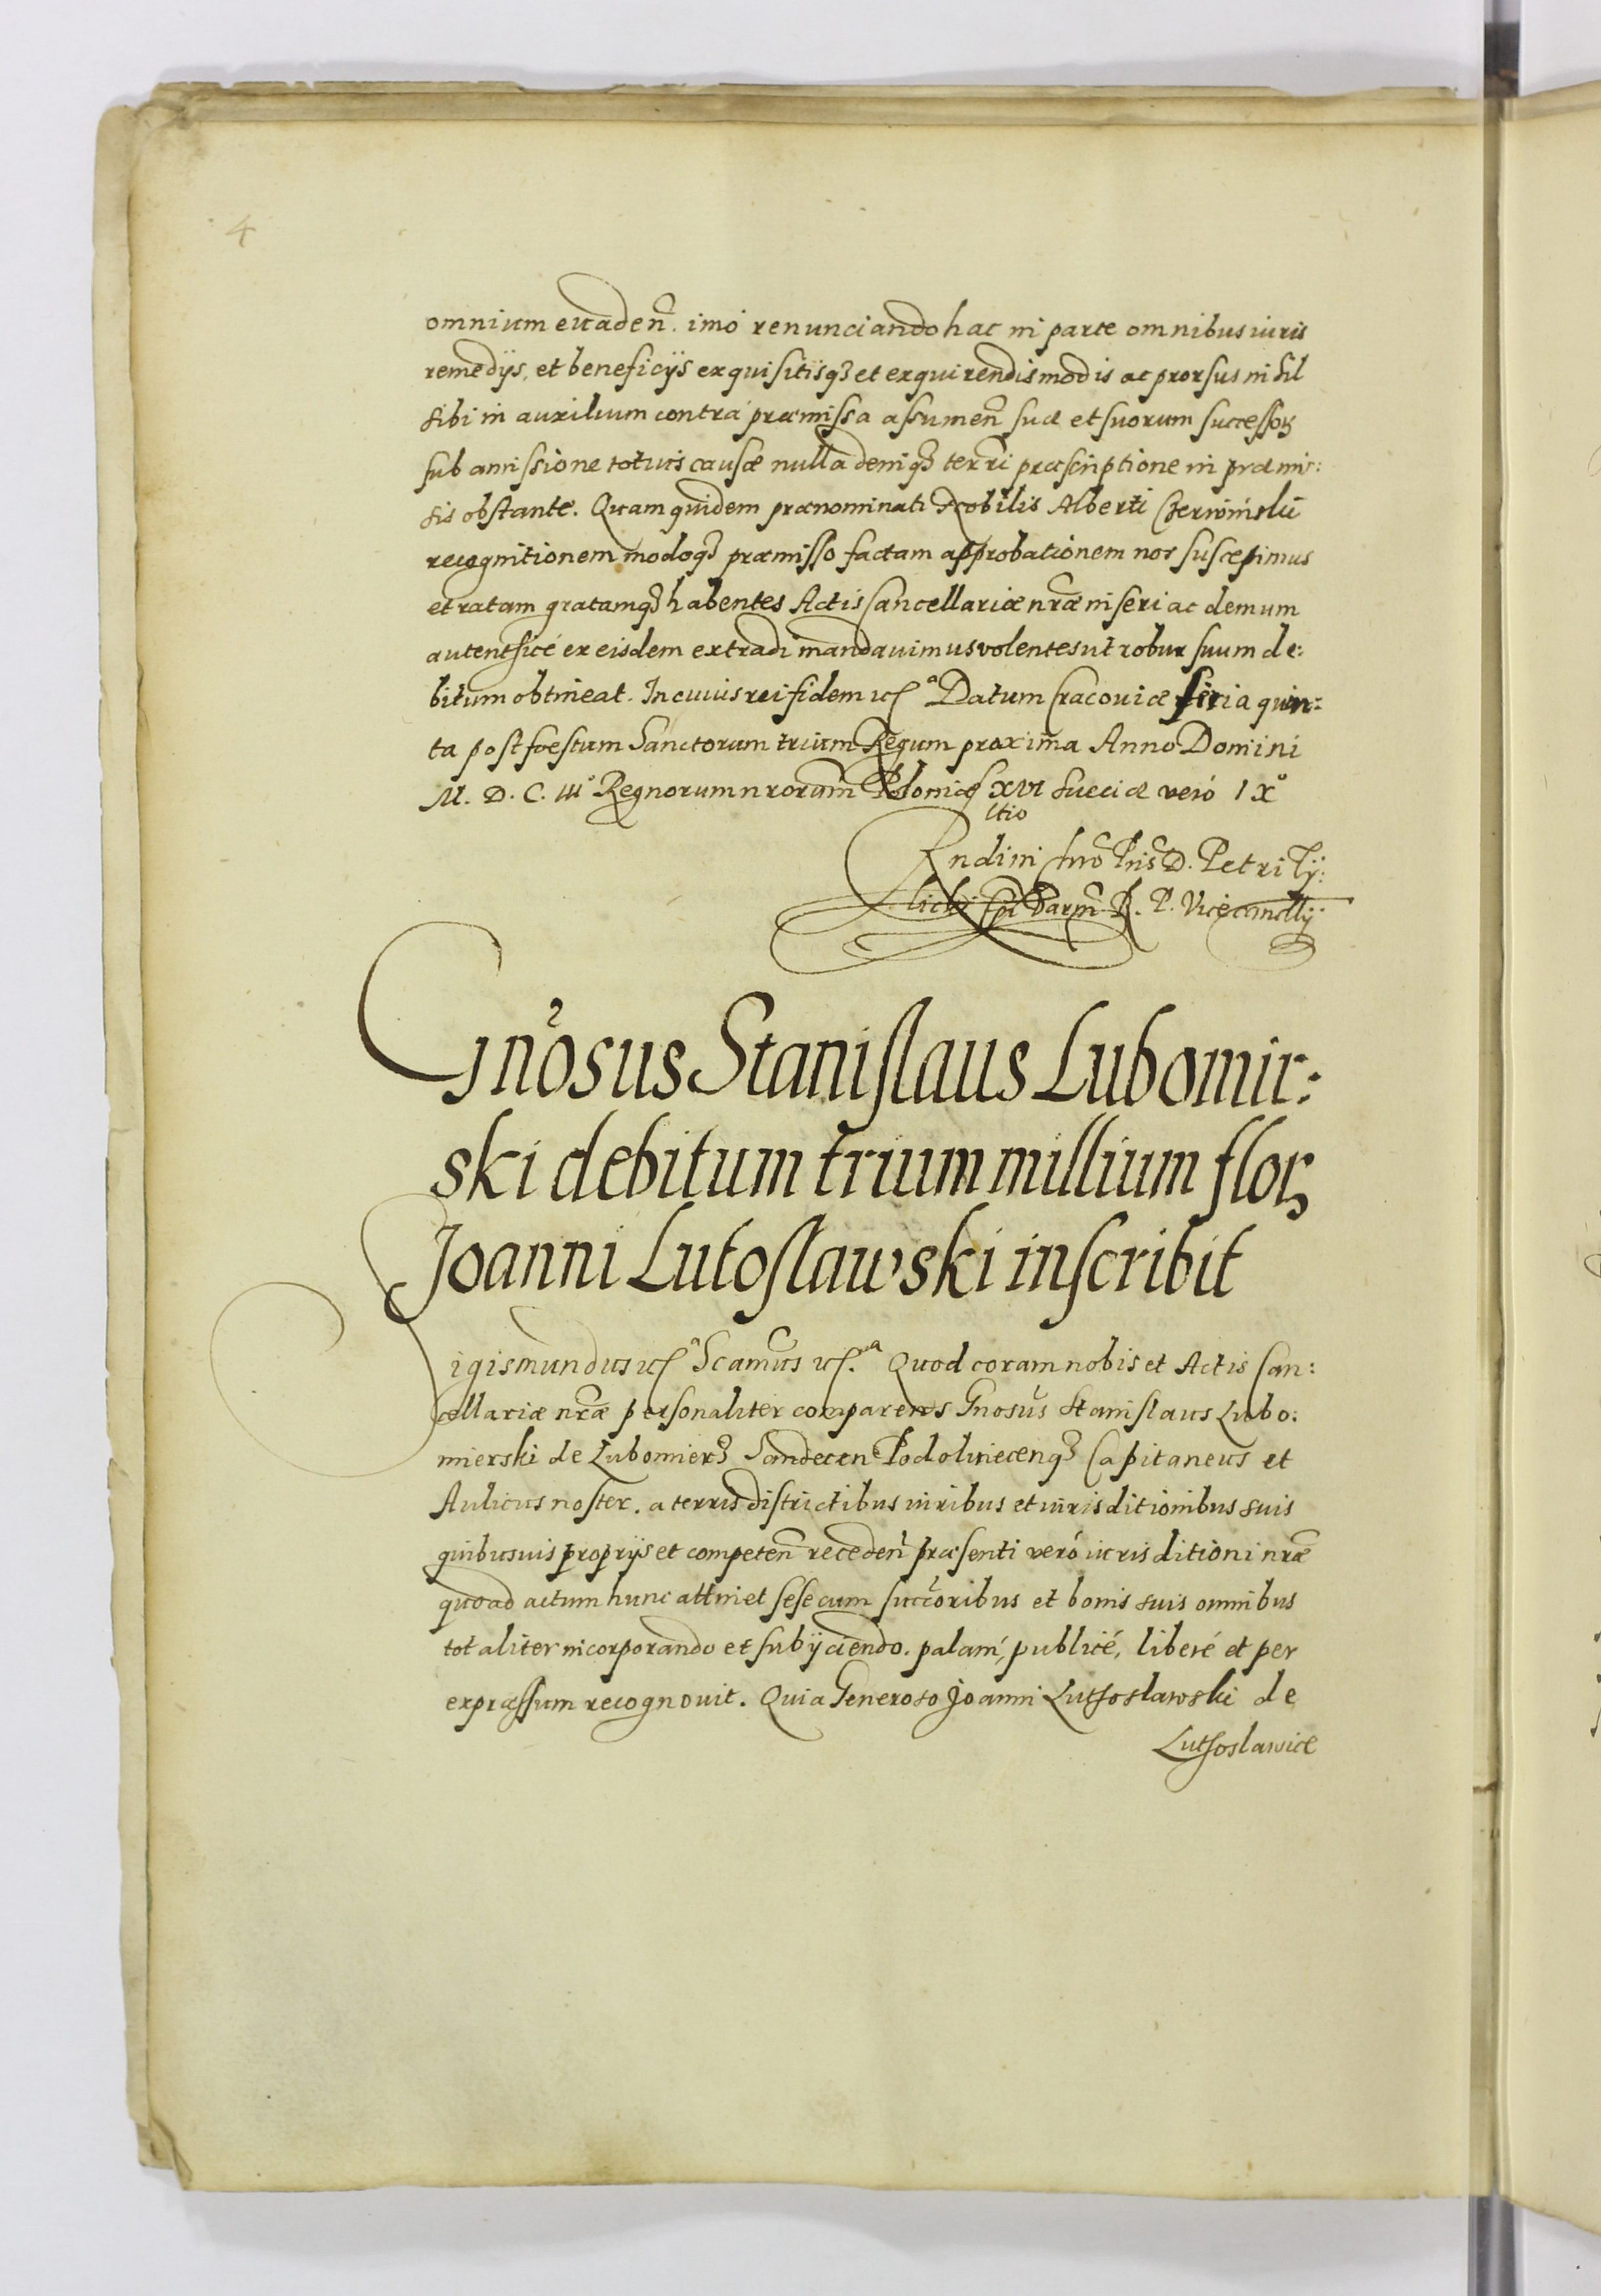 4
omnium evaden̄. imò renunciando hac in parte omnibus iuris
remedijs, et beneficijs exquisitisq3 et exquirendis modis ac prorsus nihil
sibi in auxilium contra praemissa assumen̄ suae et suorum successoꝝ
sub amissione totius causae nulla deniq3 terr̄ri praescriptione in praemis:
sis obstante. Quam quidem praenominati Nobilis Alberti Czerwinski
recognitionem modoq3 praemisso factam approbationem nos suscepimus
et ratam gratamq3 habentes Actis Cancellariae nr̄ae inseri ac demum
autenthicè ex eisdem extradi mandavimus volentes ut robur suum de:
bitum obtineat. In cuius rei fidem etc̃ª Datum Cracoviae feria quin:
ta post foestum Sanctorum trium Regum proxima Anno Domini
M. D. C. III° Regnorum nrorum Poloniae XVI Sueciae verò IX°
Rndini Chro Pris D. Petri Ty:
licki R. P. Vicecancellij
Gnōsus Stanislaus Lubomir:
ski debitum trium millium floꝝ
Joanni Lutoslawski inscribit
Sigismundus etc̃ª Scamus etc̃.ª Quod coram nobis et Actis Can:
cellariae nr̄ae personaliter comparens Gnosus Stanislaus Lubo:
mierski de Lubomierz Sandecen Podolinecenq3 Capitaneus et
Aulicus noster. a terris districtibus iuribus et iurisditionibus suis
quibusuis proprijs et competen̄ receden̄ praesenti verò iurisditioni nr̄ae
quoad actum hunc attinet sese cum succ̄oribus et bonis suis omnibus
totaliter incorporando et subijciendo. palam, publicè, liberè et per
expraessum recognovit. Quia Generoso Joanni Luthoslawski de
Luthoslawice